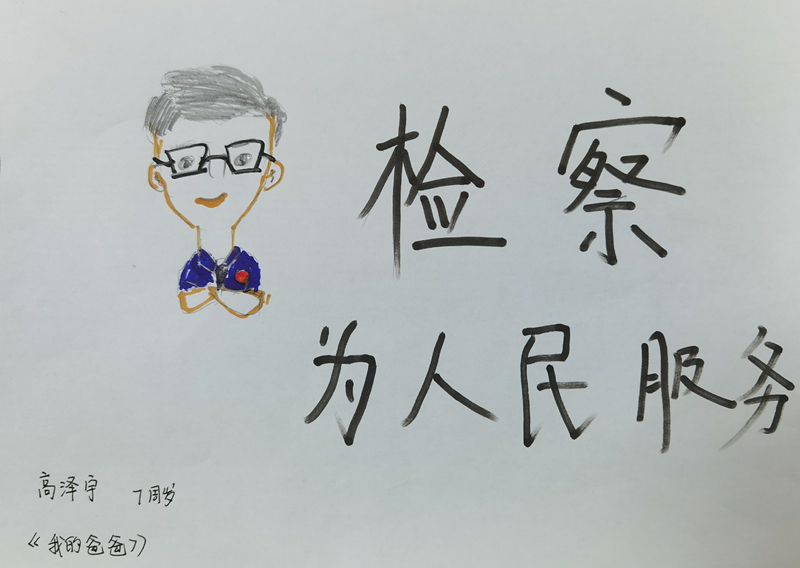 检察
为人民服务
高泽宇 7周岁
《我的爸爸》